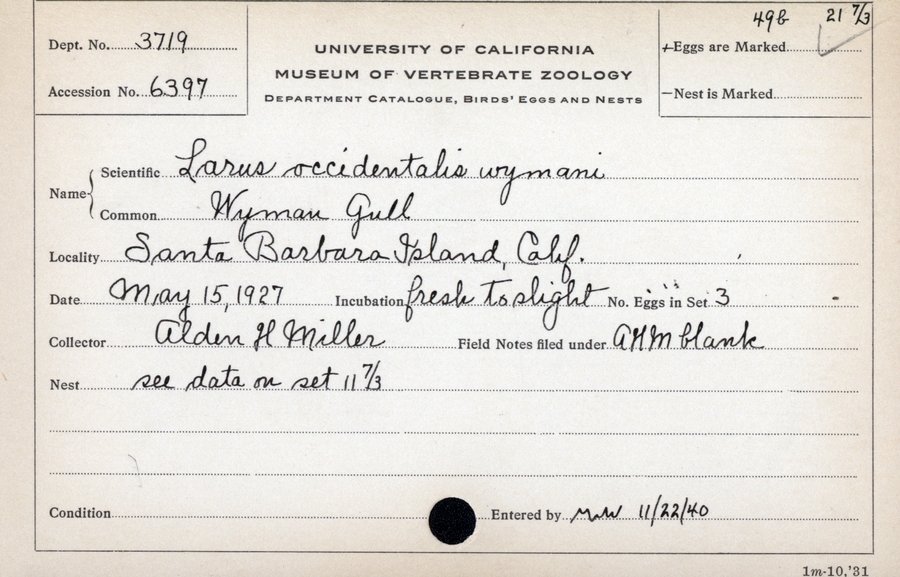 49b 21 7/3
Dept. No. 3719
UNIVERSITY OF CALIFORNIA
+Eggs are Marked
MUSEUM OF VERTEBRATE ZOOLOGY
Accession No. 6397
DEPARTMENT CATALOGUE, BIRDS' EGGS AND NESTS
—Nest is Marked
Name { Scientific Larus occidentalis wymani
Common Wyman Gull
Locality Santa Barbara Island, Calif.
Date May 15, 1927 Incubation fresh to slight No. Eggs in Set 3
Collector Alden H Miller Field Notes filed under AHM blank
Nest see data on set 11 7/3
Condition Entered by 11/22/40
1m-10,'31